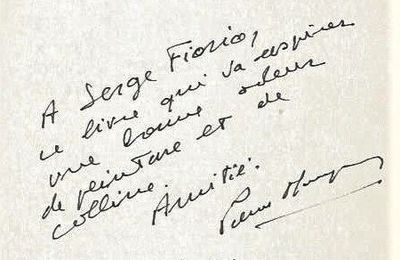 A Serge Fiorio,
ce livre qui va aspirer
une bonne odeur
de peinture et de
colline.
Amitié.
Pierre Magnan